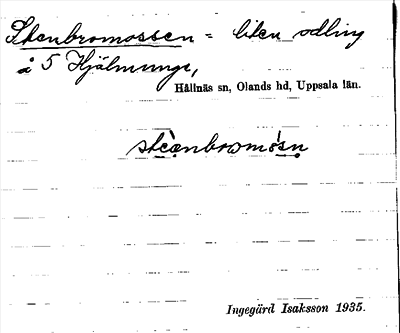 Stenbromossen = liten odling
å 5 Hjälmunge,
Hållnäs sn, Olands hd, Uppsala län.
ste̱ànbromósn
Ingegärd Isaksson 1935.